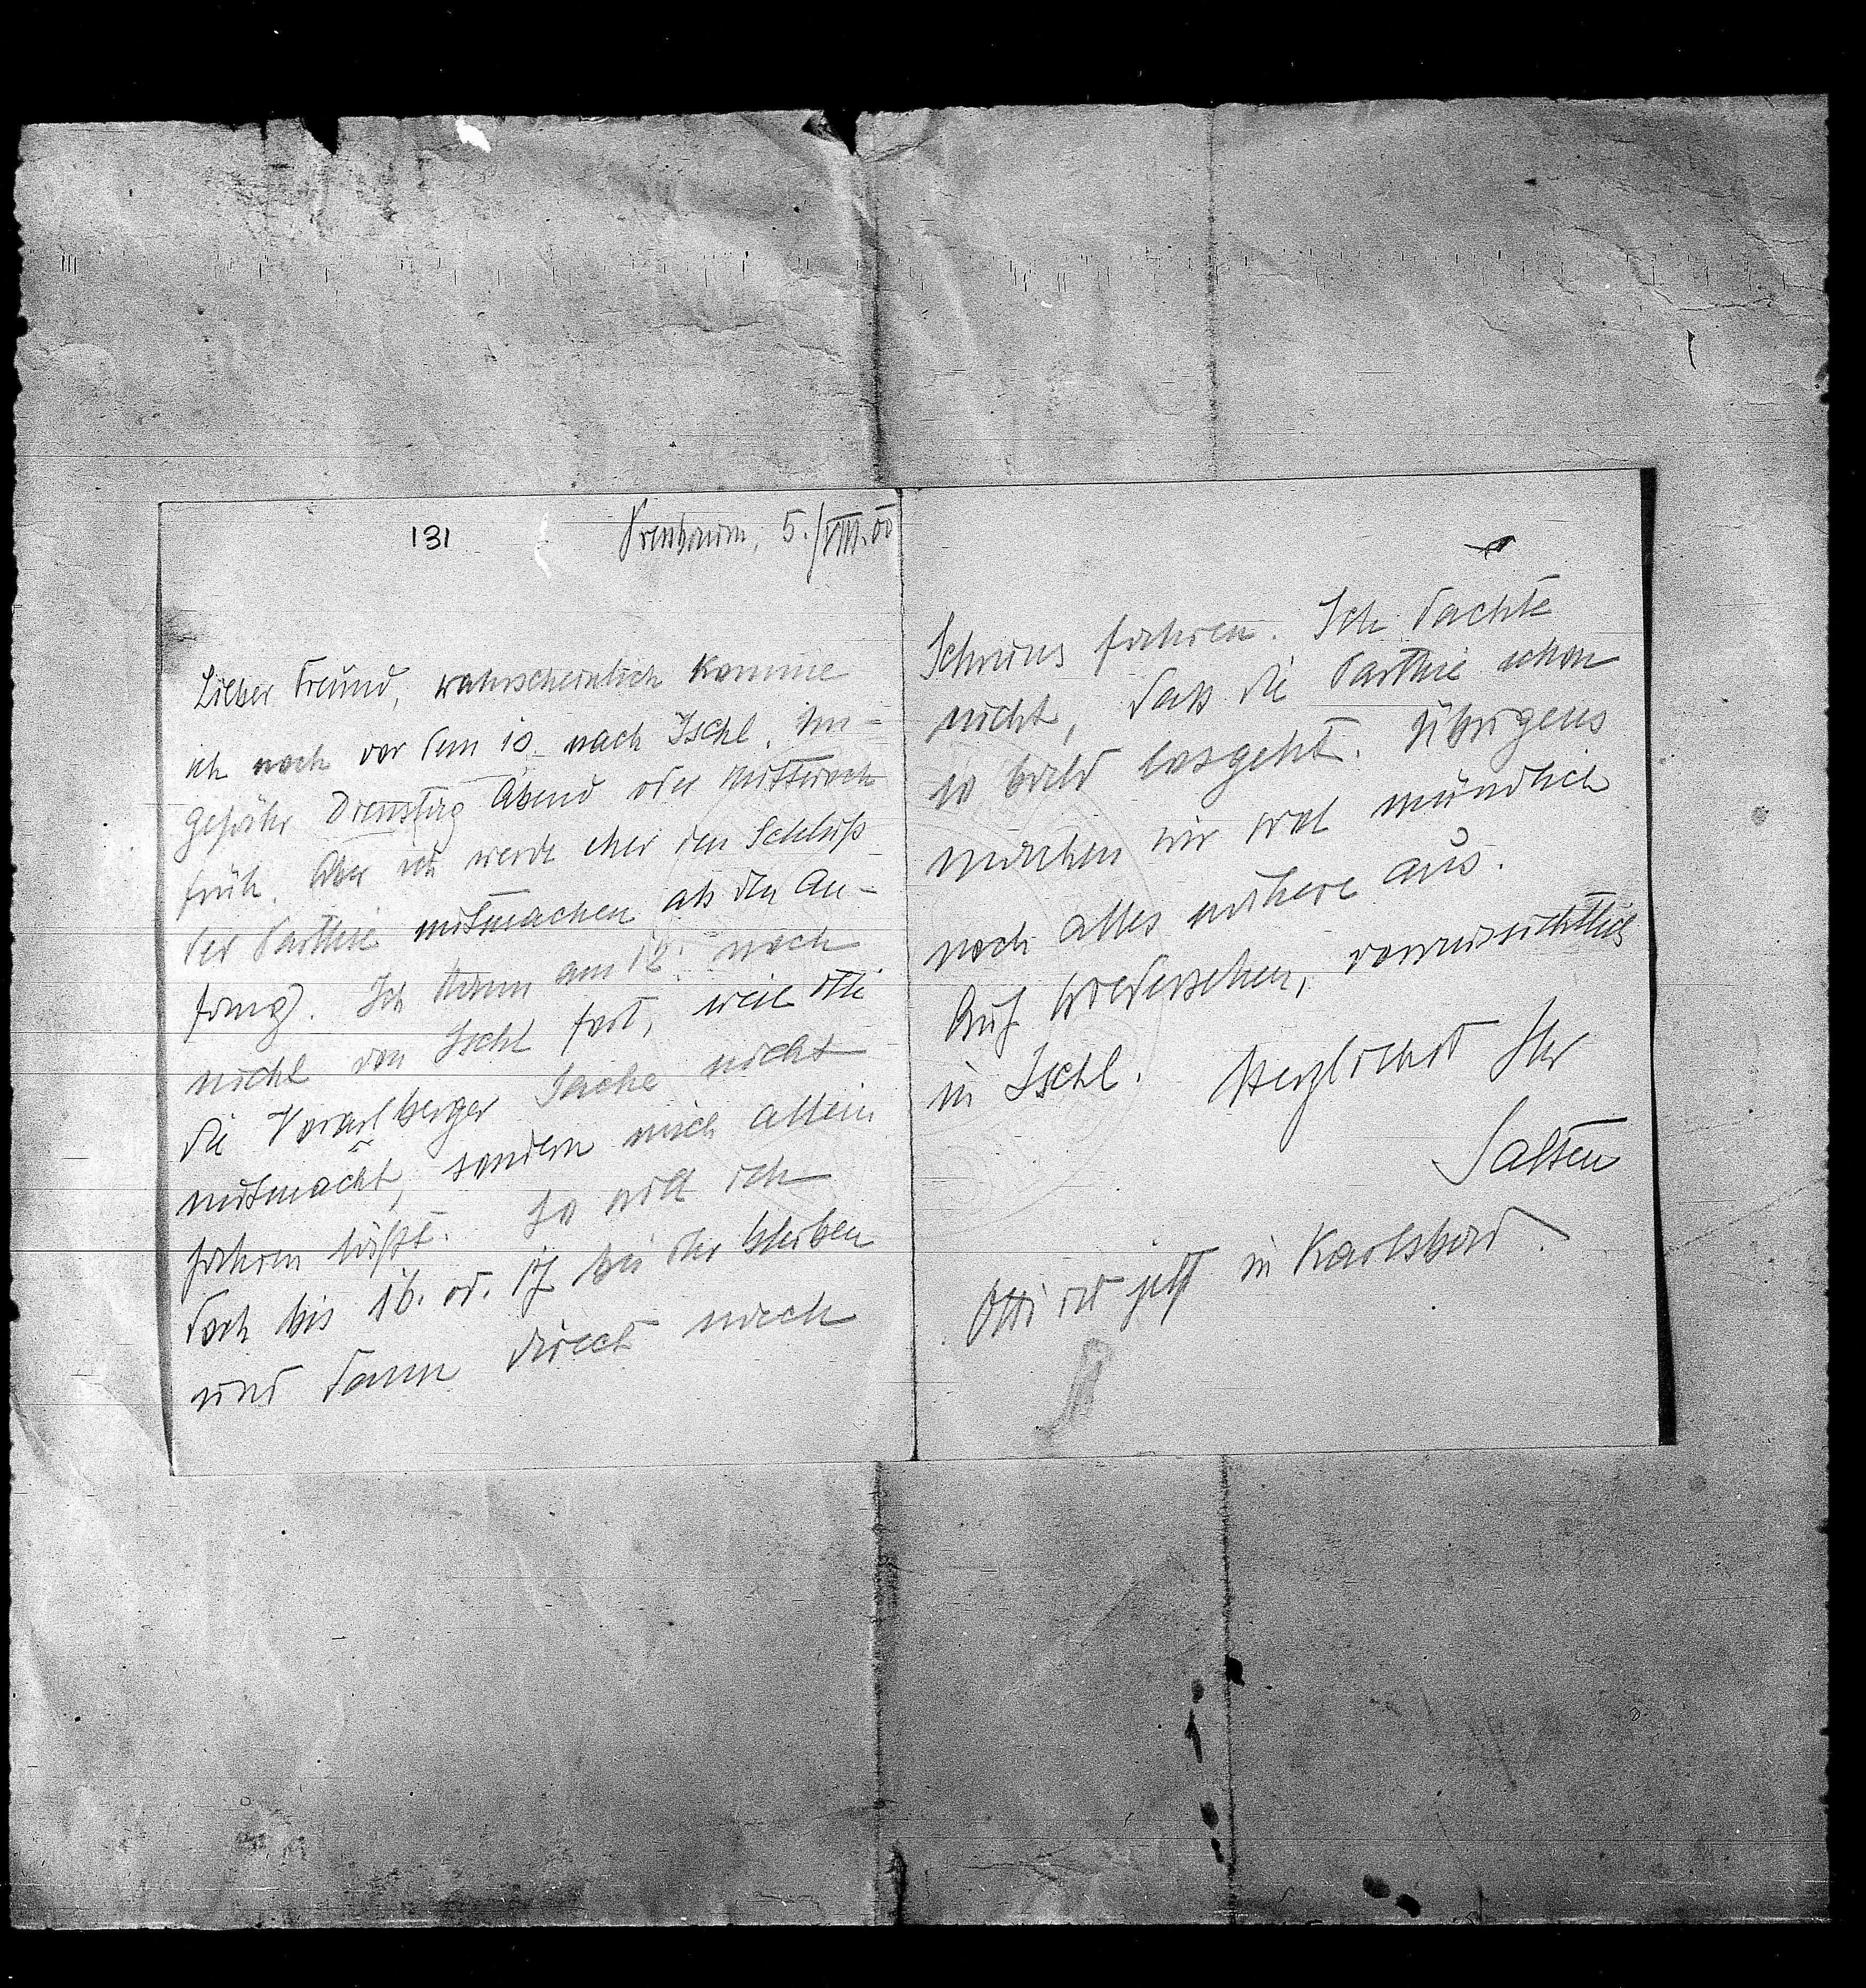 131
Pressbaum, 5./VIII.00
Lieber Freund, wahrscheinlich komme
ich noch vor dem 10. nach Ischl. Un-
gefähr Dienstag Abend oder Mittwoch
früh. Aber ich werde eher den Schluß
der Parthie mitmachen als den An-
fang. Ich kann am 12. noch
nicht von Ischl fort, weil Otti
die Vorarlberger Sache nicht
mitmacht, sondern mich allein
fahren läßt. So will ich
doch bis 16. od. 17 bei ihr bleiben
und dann direct nach
Schruns fahren. Ich dachte
nicht, daß die Parthie schon
so bald losgeht. Übrigens
machen wir wol mündlich
noch alles nähere aus.
Auf Wiedersehen, voraussichtlich
in Ischl. Herzlichst Ihr
Salten
Otti ist jetzt in Karlsbad.